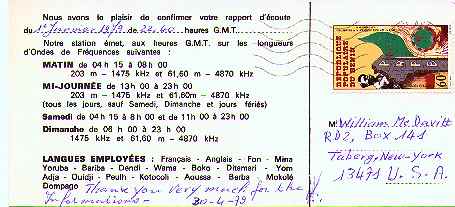 Nous avons le plaisir de confirmer votre rapport d'écoute
du 1er Janvier 1979 à 22.40 heures G.M.T.
Notre station émet, aux heures G.M.T. sur les longueurs
d'Ondes de Fréquences suivantes :
MATIN de 04 h 15 à 08 h 00
203 m - 1475 kHz et 61,60 m - 4870 kHz
MI-JOURNÉE de 13 h 00 à 23 h 00
203 m - 1475 kHz et 61,60m - 4870 kHz
(tous les jours, sauf Samedi, Dimanche et jours fériés)
Samedi de 04 h 15 à 8 h 00 et de 11 h 00 à 23 h 00
Dimanche de 06 h 00 à 23 h 00
1475 kHz et 61,60 m - 4870 kHz
LANGUES EMPLOYÉES : Français - Anglais - Fon - Mina
Yoruba - Bariba - Dendi - Wama - Boko - Ditamari - Yom
Adja - Ouidji - Peulh - Kotocoli - Aoussa - Berba - Mokolé
Dompago
Thank you very much for the
Informations -
30-4-79
REPUBLIQUE
POPULAIRE
DU BENIN
60F
M. William Mc Davitt
RD2, Box 141
Taberg, New-york
13471 U. S. A.